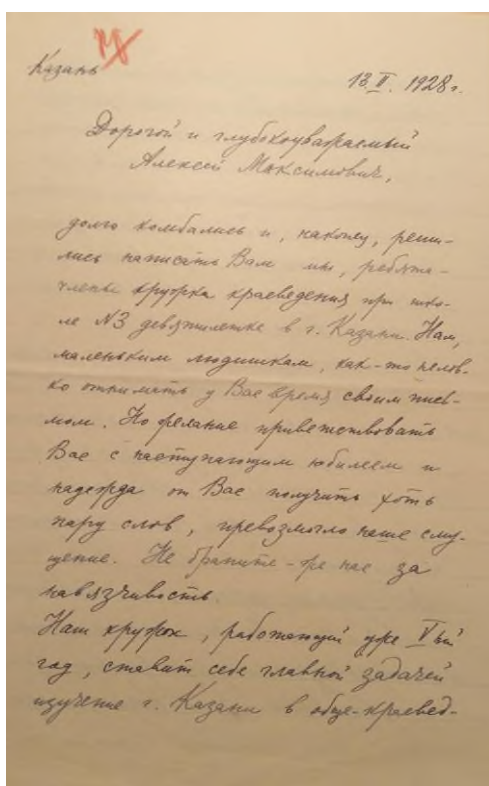 Казань
13.II.1928 г.
Дорогой и глубокоуважаемый
Алексей Максимович,
долго колебались и, наконец, реши-
лись написать Вам мы, ребята-
члены кружка краеведения при шко-
ле №3 девятилетке в г. Казани. Нам,
маленьким людишкам, как-то нелов-
ко отнимать у Вас время своим пись-
мом. Но желание приветствовать
Вас с наступающим юбилеем и
надежда от Вас получить хоть
пару слов, превозмогло наше сму-
щение. Не браните-же нас за
навязчивость.
Наш кружок, работающий уже V-ый
год, ставит себе главной задачей
изучение г. Казани в обще-краевед-